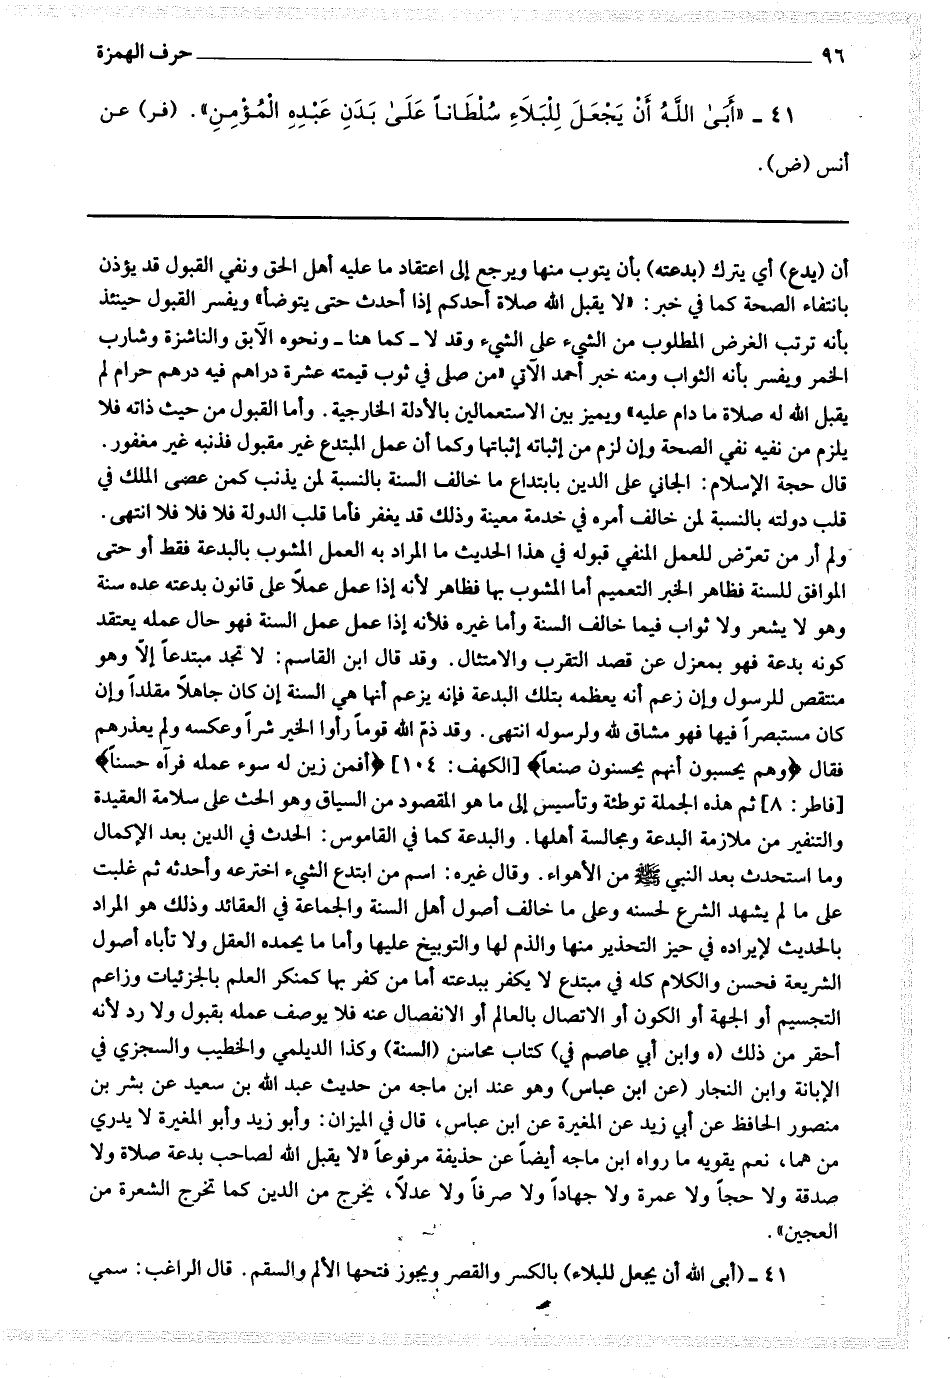 ٩٦ ـــــــــــــــــــــــــــــــــــــــــ حرف الهمزة
٤١ ـ «أَبَىٰ اللَّهُ أَنْ يَجْعَلَ لِلْبَلَاءِ سُلْطَاناً عَلَىٰ بَدَنِ عَبْدِهِ الْمُؤْمِنِ». (فر) عن
أنس (ض).
أن (يدع) أي يترك (بدعته) بأن يتوب منها ويرجع إلى اعتقاد ما عليه أهل الحق ونفي القبول قد يؤذن
بانتفاء الصحة كما في خبر: «لا يقبل الله صلاة أحدكم إذا أحدث حتى يتوضأ» ويفسر القبول حينئذ
بأنه ترتب الغرض المطلوب من الشيء على الشيء وقد لا ـ كما هنا ـ ونحوه الآبق والناشزة وشارب
الخمر ويفسر بأنه الثواب ومنه خبر أحمد الآتي «من صلى في ثوب قيمته عشرة دراهم فيه درهم حرام لم
يقبل الله له صلاة ما دام عليه» ويميز بين الاستعمالين بالأدلة الخارجية. وأما القبول من حيث ذاته فلا
يلزم من نفيه نفي الصحة وإن لزم من إثباته إثباتها وكما أن عمل المبتدع غير مقبول فذنبه غير مغفور.
قال حجة الإسلام: الجاني على الدين بابتداع ما خالف السنة بالنسبة لمن يذنب كمن عصى الملك في
قلب دولته بالنسبة لمن خالف أمره في خدمة معينة وذلك قد يغفر فأما قلب الدولة فلا فلا فلا انتهى.
ولم أر من تعرّض للعمل المنفي قبوله في هذا الحديث ما المراد به العمل المشوب بالبدعة فقط أو حتى
الموافق للسنة فظاهر الخبر التعميم أما المشوب بها فظاهر لأنه إذا عمل عملاً على قانون بدعته عده سنة
وهو لا يشعر ولا ثواب فيما خالف السنة وأما غيره فلأنه إذا عمل عمل السنة فهو حال عمله يعتقد
كونه بدعة فهو بمعزل عن قصد التقرب والامتثال. وقد قال ابن القاسم: لا تجد مبتدعاً إلاّ وهو
منتقص للرسول وإن زعم أنه يعظمه بتلك البدعة فإنه يزعم أنها هي السنة إن كان جاهلاً مقلداً وإن
كان مستبصراً فيها فهو مشاق لله ولرسوله انتهى. وقد ذمّ الله قوماً رأوا الخير شراً وعكسه ولم يعذرهم
فقال ﴿وهم يحسبون أنهم يحسنون صنعاً﴾ [الكهف: ١٠٤] ﴿أفمن زين له سوء عمله فرآه حسناً﴾
[فاطر: ٨] ثم هذه الجملة توطئة وتأسيس إلى ما هو المقصود من السياق وهو الحث على سلامة العقيدة
والتنفير من ملازمة البدعة ومجالسة أهلها. والبدعة كما في القاموس: الحدث في الدين بعد الإكمال
وما استحدث بعد النبي ﷺ من الأهواء. وقال غيره: اسم من ابتدع الشيء اخترعه وأحدثه ثم غلبت
على ما لم يشهد الشرع لحسنه وعلى ما خالف أصول أهل السنة والجماعة في العقائد وذلك هو المراد
بالحديث لإيراده في حيز التحذير منها والذم لها والتوبيخ عليها وأما ما يحمده العقل ولا تأباه أصول
الشريعة فحسن والكلام كله في مبتدع لا يكفر ببدعته أما من كفر بها كمنكر العلم بالجزئيات وزاعم
التجسيم أو الجهة أو الكون أو الاتصال بالعالم أو الانفصال عنه فلا يوصف عمله بقبول ولا رد لأنه
أحقر من ذلك (ه وابن أبي عاصم في) كتاب محاسن (السنة) وكذا الديلمي والخطيب والسجزي في
الإبانة وابن النجار (عن ابن عباس) وهو عند ابن ماجه من حديث عبد الله بن سعيد عن بشر بن
منصور الحافظ عن أبي زيد عن المغيرة عن ابن عباس، قال في الميزان: وأبو زيد وأبو المغيرة لا يدري
من هما، نعم يقويه ما رواه ابن ماجه أيضاً عن حذيفة مرفوعاً «لا يقبل الله لصاحب بدعة صلاة ولا
صدقة ولا حجاً ولا عمرة ولا جهاداً ولا صرفاً ولا عدلاً، يخرج من الدين كما تخرج الشعرة من
العجين».
٤١ ـ (أبى الله أن يجعل للبلاء) بالكسر والقصر ويجوز فتحها الألم والسقم. قال الراغب: سمي